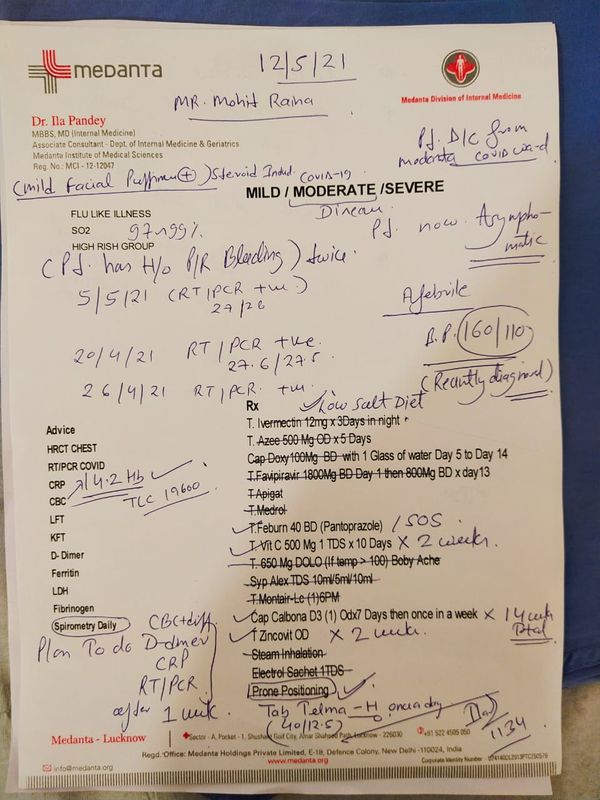 medanta
12/5/21
Mr. Mohit Raina
Medanta Division of Internal Medicine
Dr. Ila Pandey
MBBS, MD (Internal Medicine)
Associate Consultant - Dept. of Internal Medicine & Geriatrics
Medanta Institute of Medical Sciences
Reg. No.: MCI - 12-12047
Pt. D/C from
medanta covid ward
(mild Facial Puffiness +) Steroid Indud.
COVID-19
MILD / MODERATE /SEVERE
Disease
FLU LIKE ILLNESS
SO2 97-99%
HIGH RISH GROUP
Pt. now Asympto-
matic
(Pt. has H/o P/R Bleeding) twice.
5/5/21 (RT/PCR +ve)
27/26
Afebrile
B.P. 160/110
(Recently diagnosed)
20/4/21 RT/PCR +ve
27.6/27.5
26/4/21 RT/PCR +ve
Rx
Low Salt Diet
Advice
HRCT CHEST
RT/PCR COVID
CRP
14.2 Hb
CBC
TLC 19600
LFT
KFT
D- Dimer
Ferritin
LDH
Fibrinogen
Spirometry Daily
T. Ivermectin 12mg x 3Days in night
T. Azee 500 Mg OD x 5 Days
Cap Doxy100Mg BD with 1 Glass of water Day 5 to Day 14
T.Favipiravir 1800Mg BD Day 1 then 800Mg BD x day13
T.Apigat
T.Medrol
T.Feburn 40 BD (Pantoprazole) / SOS
T. Vit C 500 Mg 1 TDS x 10 Days x 2 weeks.
T. 650 Mg DOLO (If temp > 100) Boby Ache
Syp Alex TDS 10ml/5ml/10ml
T.Montair-Lc (1)6PM
Cap Calbona D3 (1) Odx7 Days then once in a week x 14 week
Total
T Zincovit OD x 2 week.
Steam Inhalation
Electrol Sachet 1TDS
Prone Positioning
Tab Telma-H once a day
(40/12.5)
1134
Plan To do
CBC+diff
D-dimer
CRP
RT/PCR
after 1 week.
Medanta - Lucknow
Sector - A, Pocket - 1, Sushant Golf City, Amar Shaheed Path, Lucknow - 226030
+91 522 4505 050
Regd. Office: Medanta Holdings Private Limited, E-18, Defence Colony, New Delhi -110024, India
info@medanta.org
www.medanta.org
Corporate Identity Number